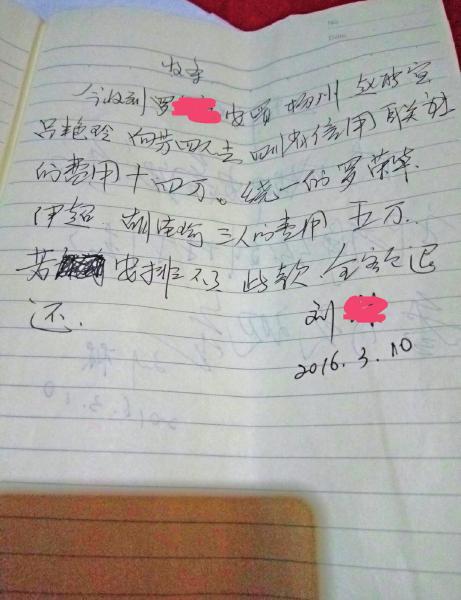 No.
Date
收条
今收到罗 安 杨州
吕艳玲 四人去四川 信用联社
的费用十四万。统一的罗荣
伊超 三人的费用 五万.
若 安排不了 此款全 退
还.
刘
2016.3.10